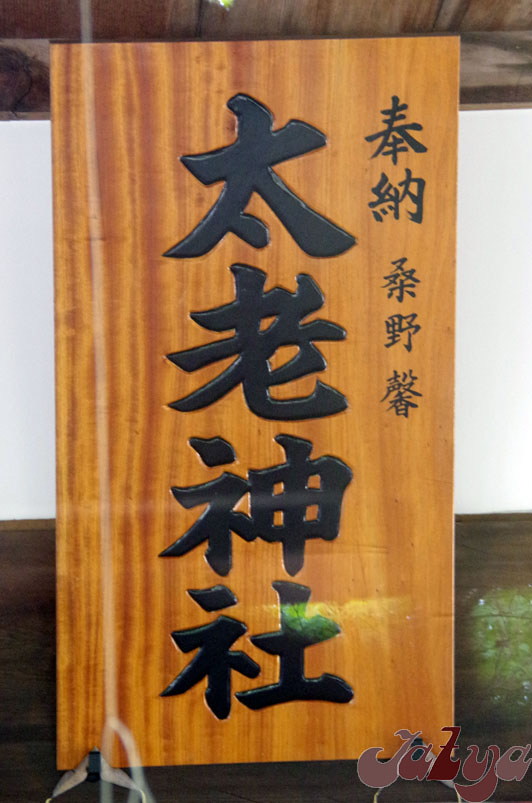 奉納 桑野 馨
太老神社
JaZya